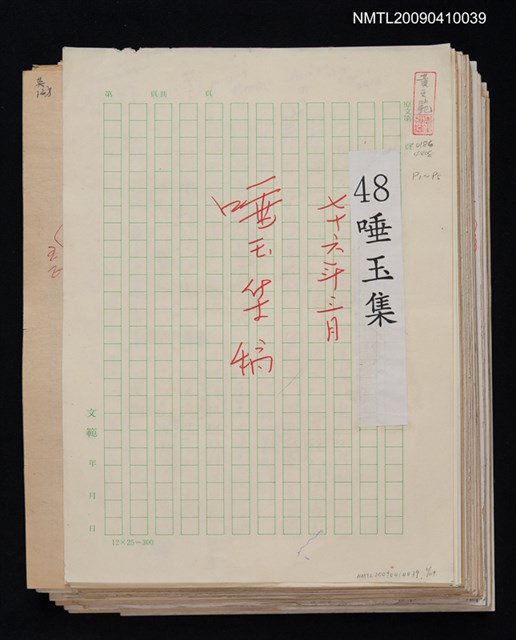 NMTL20090410039
黃文範
第 頁共 頁
48唾玉集
七十六年三月
唾玉集稿
文範 年 月 日
12×25=300
P1~P5
NMTL20090410039